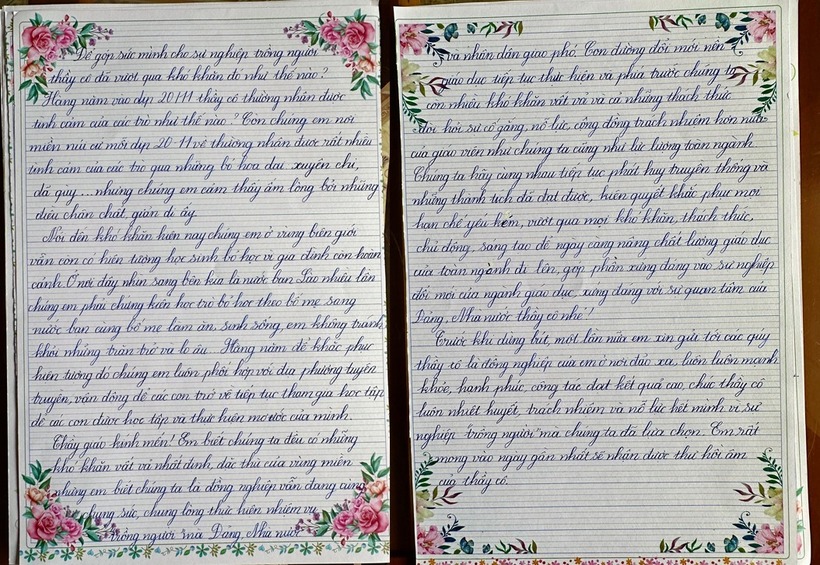 Để góp sức mình cho sự nghiệp trồng người
thầy cô đã vượt qua khó khăn đó như thế nào?
Hàng năm vào dịp 20/11 thầy cô thường nhận được
tình cảm của các trò như thế nào? Còn chúng em nơi
miền núi cứ mỗi dịp 20-11 về thường nhận được rất nhiều
tình cảm của các trò qua những bó hoa dại xuyến chi,
dã quỳ... nhưng chúng em cảm thấy ấm lòng bởi những
điều chân chất, giản dị ấy.
Nói đến khó khăn hiện nay chúng em ở vùng biên giới
vẫn còn có hiện tượng học sinh bỏ học vì gia đình còn hoàn
cảnh. Ở nơi đây nhìn sang bên kia là nước bạn Lào nhiều lần
chúng em phải chứng kiến học trò bỏ học theo bố mẹ sang
nước bạn cùng bố mẹ làm ăn, sinh sống, em không tránh
khỏi những trăn trở và lo âu. Hàng năm để khắc phục
hiện tượng đó chúng em luôn phối hợp với địa phương tuyên
truyền, vận động để các con trở về tiếp tục tham gia học tập
để các con được học tập và thực hiện mơ ước của mình.
Thầy giáo kính mến! Em biết chúng ta đều có những
khó khăn vất vả nhất định, đặc thù của vùng miền
nhưng em biết chúng ta là đồng nghiệp vẫn đang cùng
chung sức, chung lòng thực hiện nhiệm vụ
trồng người mà Đảng, Nhà nước
và nhân dân giao phó. Con đường đổi mới nền
giáo dục tiếp tục thực hiện và phía trước chúng ta
còn nhiều khó khăn vất vả và cả những thách thức
đòi hỏi sự cố gắng, nỗ lực, cộng đồng trách nhiệm hơn nữa
của giáo viên như chúng ta cũng như lực lượng toàn ngành.
Chúng ta hãy cùng nhau tiếp tục phát huy truyền thống và
những thành tích đã đạt được, kiên quyết khắc phục mọi
hạn chế yếu kém, vượt qua mọi khó khăn, thách thức,
chủ động, sáng tạo để ngày càng nâng chất lượng giáo dục
của toàn ngành đi lên, góp phần xứng đáng vào sự nghiệp
đổi mới của ngành giáo dục, xứng đáng với sự quan tâm của
Đảng, Nhà nước thầy cô nhé!
Trước khi dừng bút, một lần nữa em xin gửi tới các quý
thầy cô là đồng nghiệp của em ở nơi đảo xa, luôn luôn mạnh
khỏe, hạnh phúc, công tác đạt kết quả cao, chúc thầy cô
luôn nhiệt huyết, trách nhiệm và nỗ lực hết mình vì sự
nghiệp "trồng người" mà chúng ta đã lựa chọn. Em rất
mong vào ngày gần nhất sẽ nhận được thư hồi âm
của thầy cô.